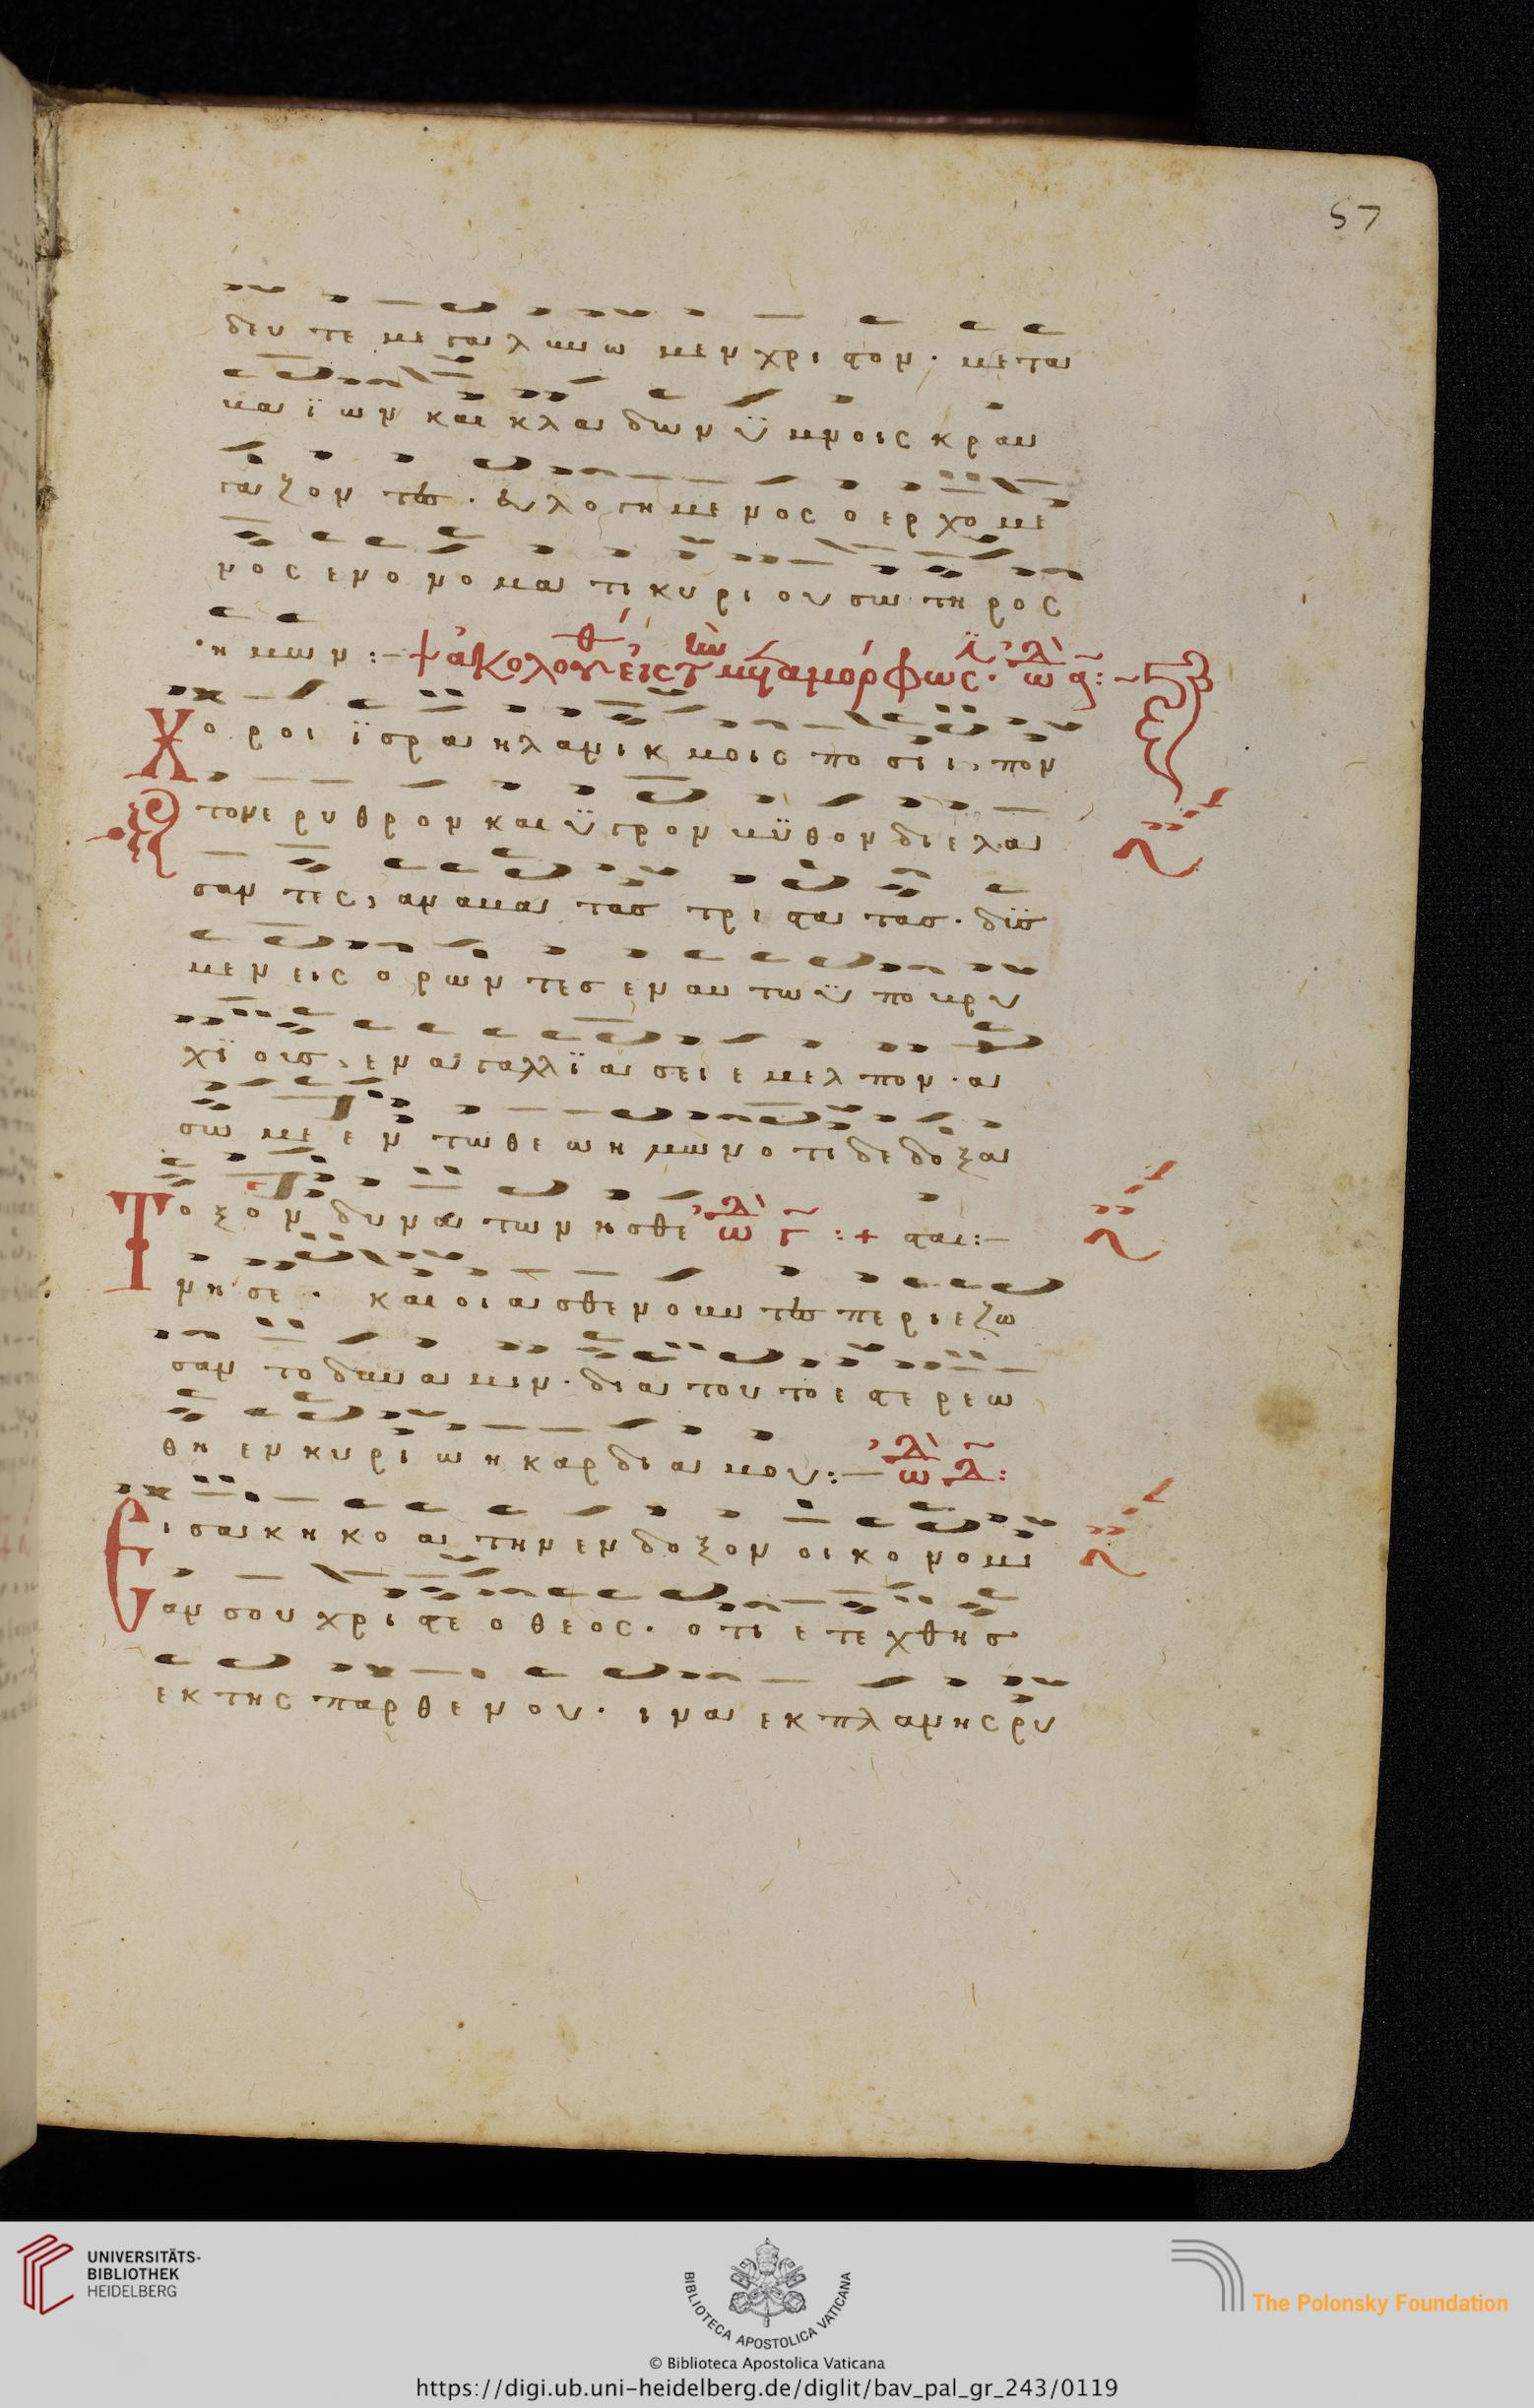 57
δευ τε με γα λυ νω μεν χρι στον · με τα
βα ϊ ων και κλα δων ϋ μνοις κρα υ
γα ζον τες · ευ λο γη με νος ο ερ χο με
νος εν ο νο μα τι κυ ρι ου σω τη ρος
η μων :–
Χο ροι ϊ σρα ηλ α νικ μοις πο σι ν, πον
τον ε ρυ θρον και ϋ γρον βυ θον δι ε λα
σαν τες, αν α βα τας τρι στα τας · δυσ
με νεις ο ρων τες εν αυ τω ϋ πο βρυ
χι οις, εν α γαλ λι α σει ε μελ πον · α
σω με εν τω θε ω η μων ο τι δε δο ξα
Το ξον δυ να των η σθε ωδ γ : + σται :–
νη σε · και οι α σθε νουν τες πε ρι ε ζω
σαν το δυ να μιν · δι α του το ε στε ρε ω
θη εν κυ ρι ω η καρ δι α μου :– ωδ δ :
Εισ α κη κο α την εν δο ξον οι κο νο μι
αν σου χρι στε ο θε ος · ο τι ε τε χθης
εκ της παρ θε νου · ι να εκ πλα νης ρυ
UNIVERSITÄTS-
BIBLIOTHEK
HEIDELBERG
BIBLIOTECA APOSTOLICA VATICANA
The Polonsky Foundation
© Biblioteca Apostolica Vaticana
https://digi.ub.uni-heidelberg.de/diglit/bav_pal_gr_243/0119